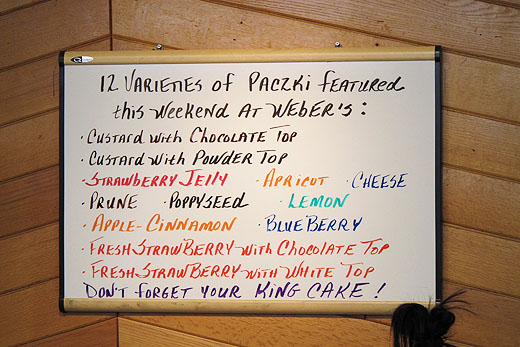 12 Varieties of Paczki featured
this Weekend at Weber's:
· Custard with Chocolate Top
· Custard with Powder Top
· Strawberry Jelly · Apricot · Cheese
· Prune · Poppyseed · Lemon
· Apple-Cinnamon · Blueberry
· Fresh Strawberry with Chocolate Top
· Fresh Strawberry with White Top
Don't forget your King Cake!